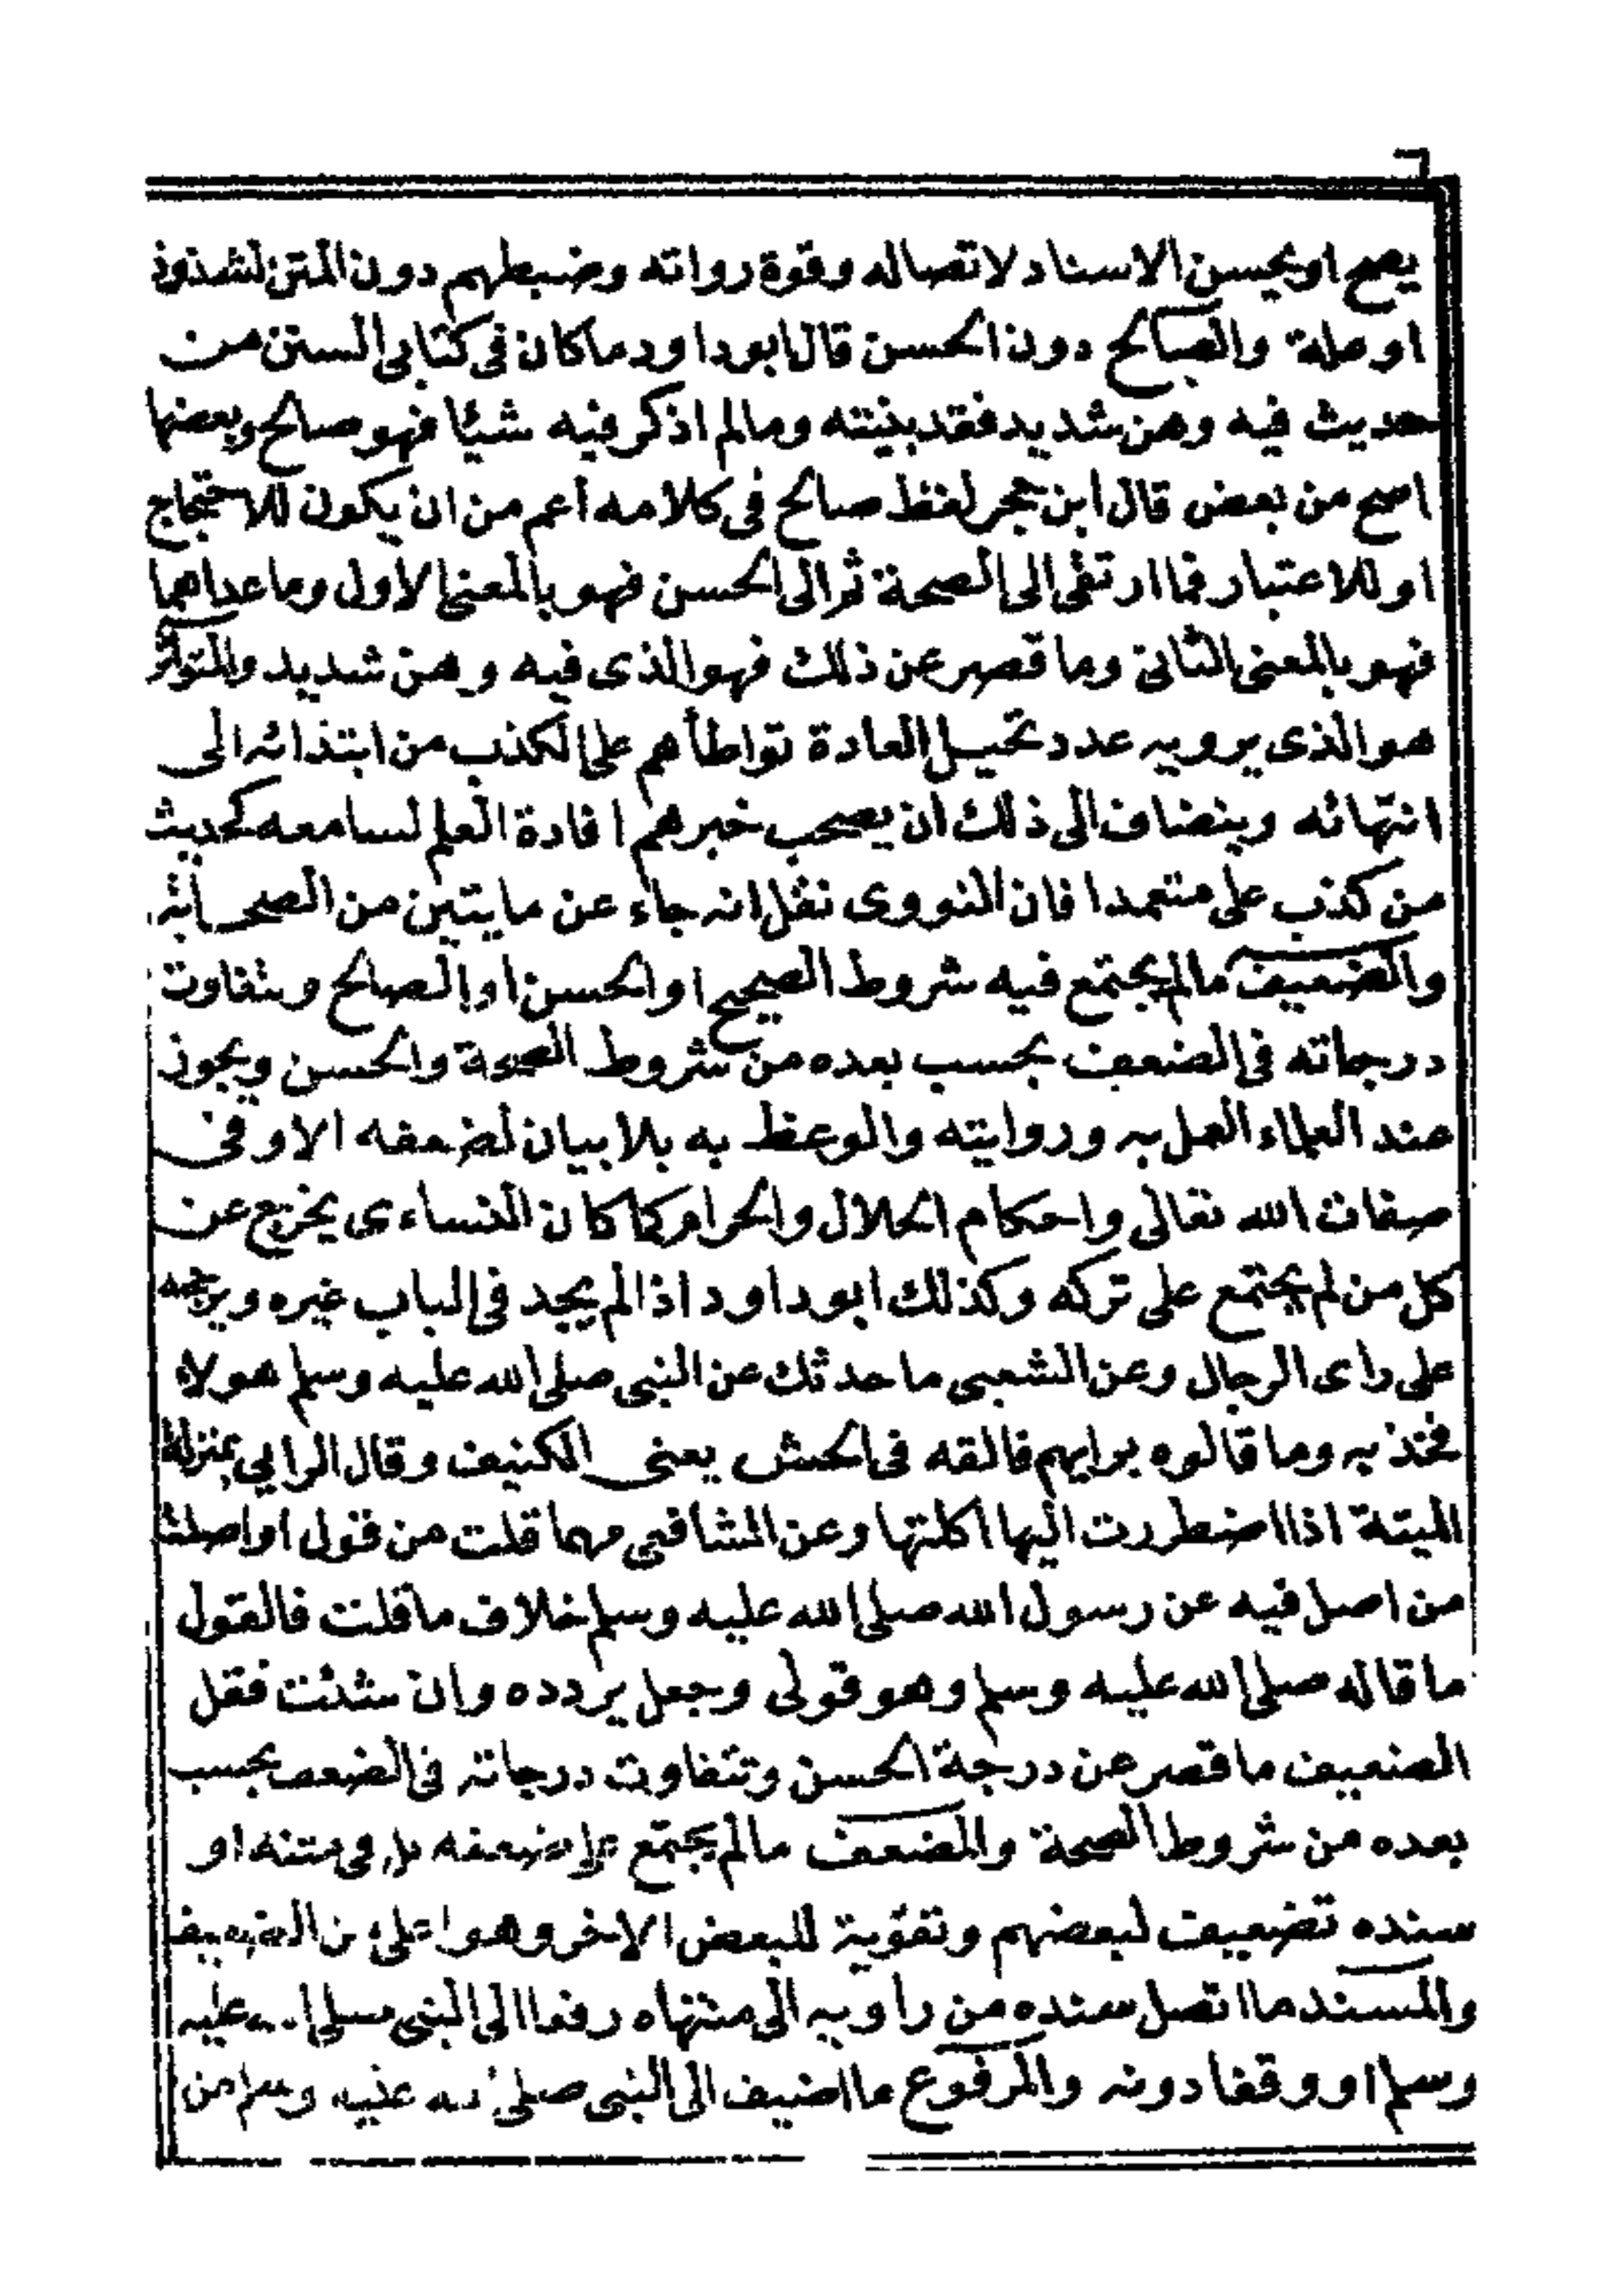 ٦
يصح او يحسن الاسناد لاتصاله وقوة رواته وضبطهم دون المتن لشذوذ
او علة والصالح دون الحسن قال ابو داود ما كان فى كتابى السنن من
حديث فيه وهن شديد فقد بينته وما لم اذكر فيه شيئا فهو صالح وبعضها
اصح من بعض قال ابن حجر لفظ صالح فى كلامه اعم من ان يكون للاحتجاج
او للاعتبار فما ارتقى الى الصحة ثم الى الحسن فهو بالمعنى الاول وما عداهما
فهو بالمعنى الثانى وما قصر عن ذلك فهو الذى فيه وهن شديد والمتواتر
هو الذى يرويه عدد تحيل العادة تواطأهم على الكذب من ابتدائه الى
انتهائه وينضاف الى ذلك ان يصحب خبرهم افادة العلم لسامعه كحديث
من كذب على متعمدا فان النووى نقل انه جاء عن مايتين من الصحابة
والضعيف ما لم يجتمع فيه شروط الصحيح او الحسن او الصالح ويتفاوت
درجاته فى الضعف بحسب بعده من شروط الصحة والحسن ويجوز
عند العلماء العمل به وروايته والوعظ به بلا بيان لضعفه الا وفى
صفات الله تعالى واحكام الحلال والحرام كما كان النساءى يخرج عن
كل من لم يجتمع على تركه وكذلك ابو داود اذا لم يجد فى الباب غيره ويرجحه
على راى الرجال وعن الشعبى ما حدثك عن النبى صلى الله عليه وسلم هولاء
فخذ به وما قالوه برايهم فالقه فى الحش يعنى الكنيف وقال الراى بمنزلة
الميتة اذا اضطررت اليها اكلتها وعن الشافعى مهما قلت من قول او اصلت
من اصل فيه عن رسول الله صلى الله عليه وسلم خلاف ما قلت فالقول
ما قاله صلى الله عليه وسلم وهو قولى وجعل يردده وان شئت فقل
الضعيف ما قصر عن درجة الحسن وتتفاوت درجاته فى الضعف بحسب
بعده من شروط الصحة والمضعف ما لم يجتمع على ضعفه بل فى متنه او
سنده تضعيف لبعضهم وتقوية للبعض الاخر وهو اعلى من الضعيف
والمسند ما اتصل سنده من راويه الى منتهاه رفعا الى النبى صلى الله عليه
وسلم او وقفا دونه والمرفوع ما اضيف الى النبى صلى الله عليه وسلم من